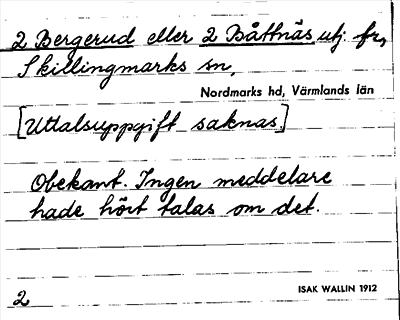 2 Bergerud eller 2 Båttnäs, utj. fr.
Skillingmarks sn,
Nordmarks hd, Värmlands län
[Uttalsuppgift saknas]
Obekant. Ingen meddelare
hade hört talas om det.
2
ISAK WALLIN 1912